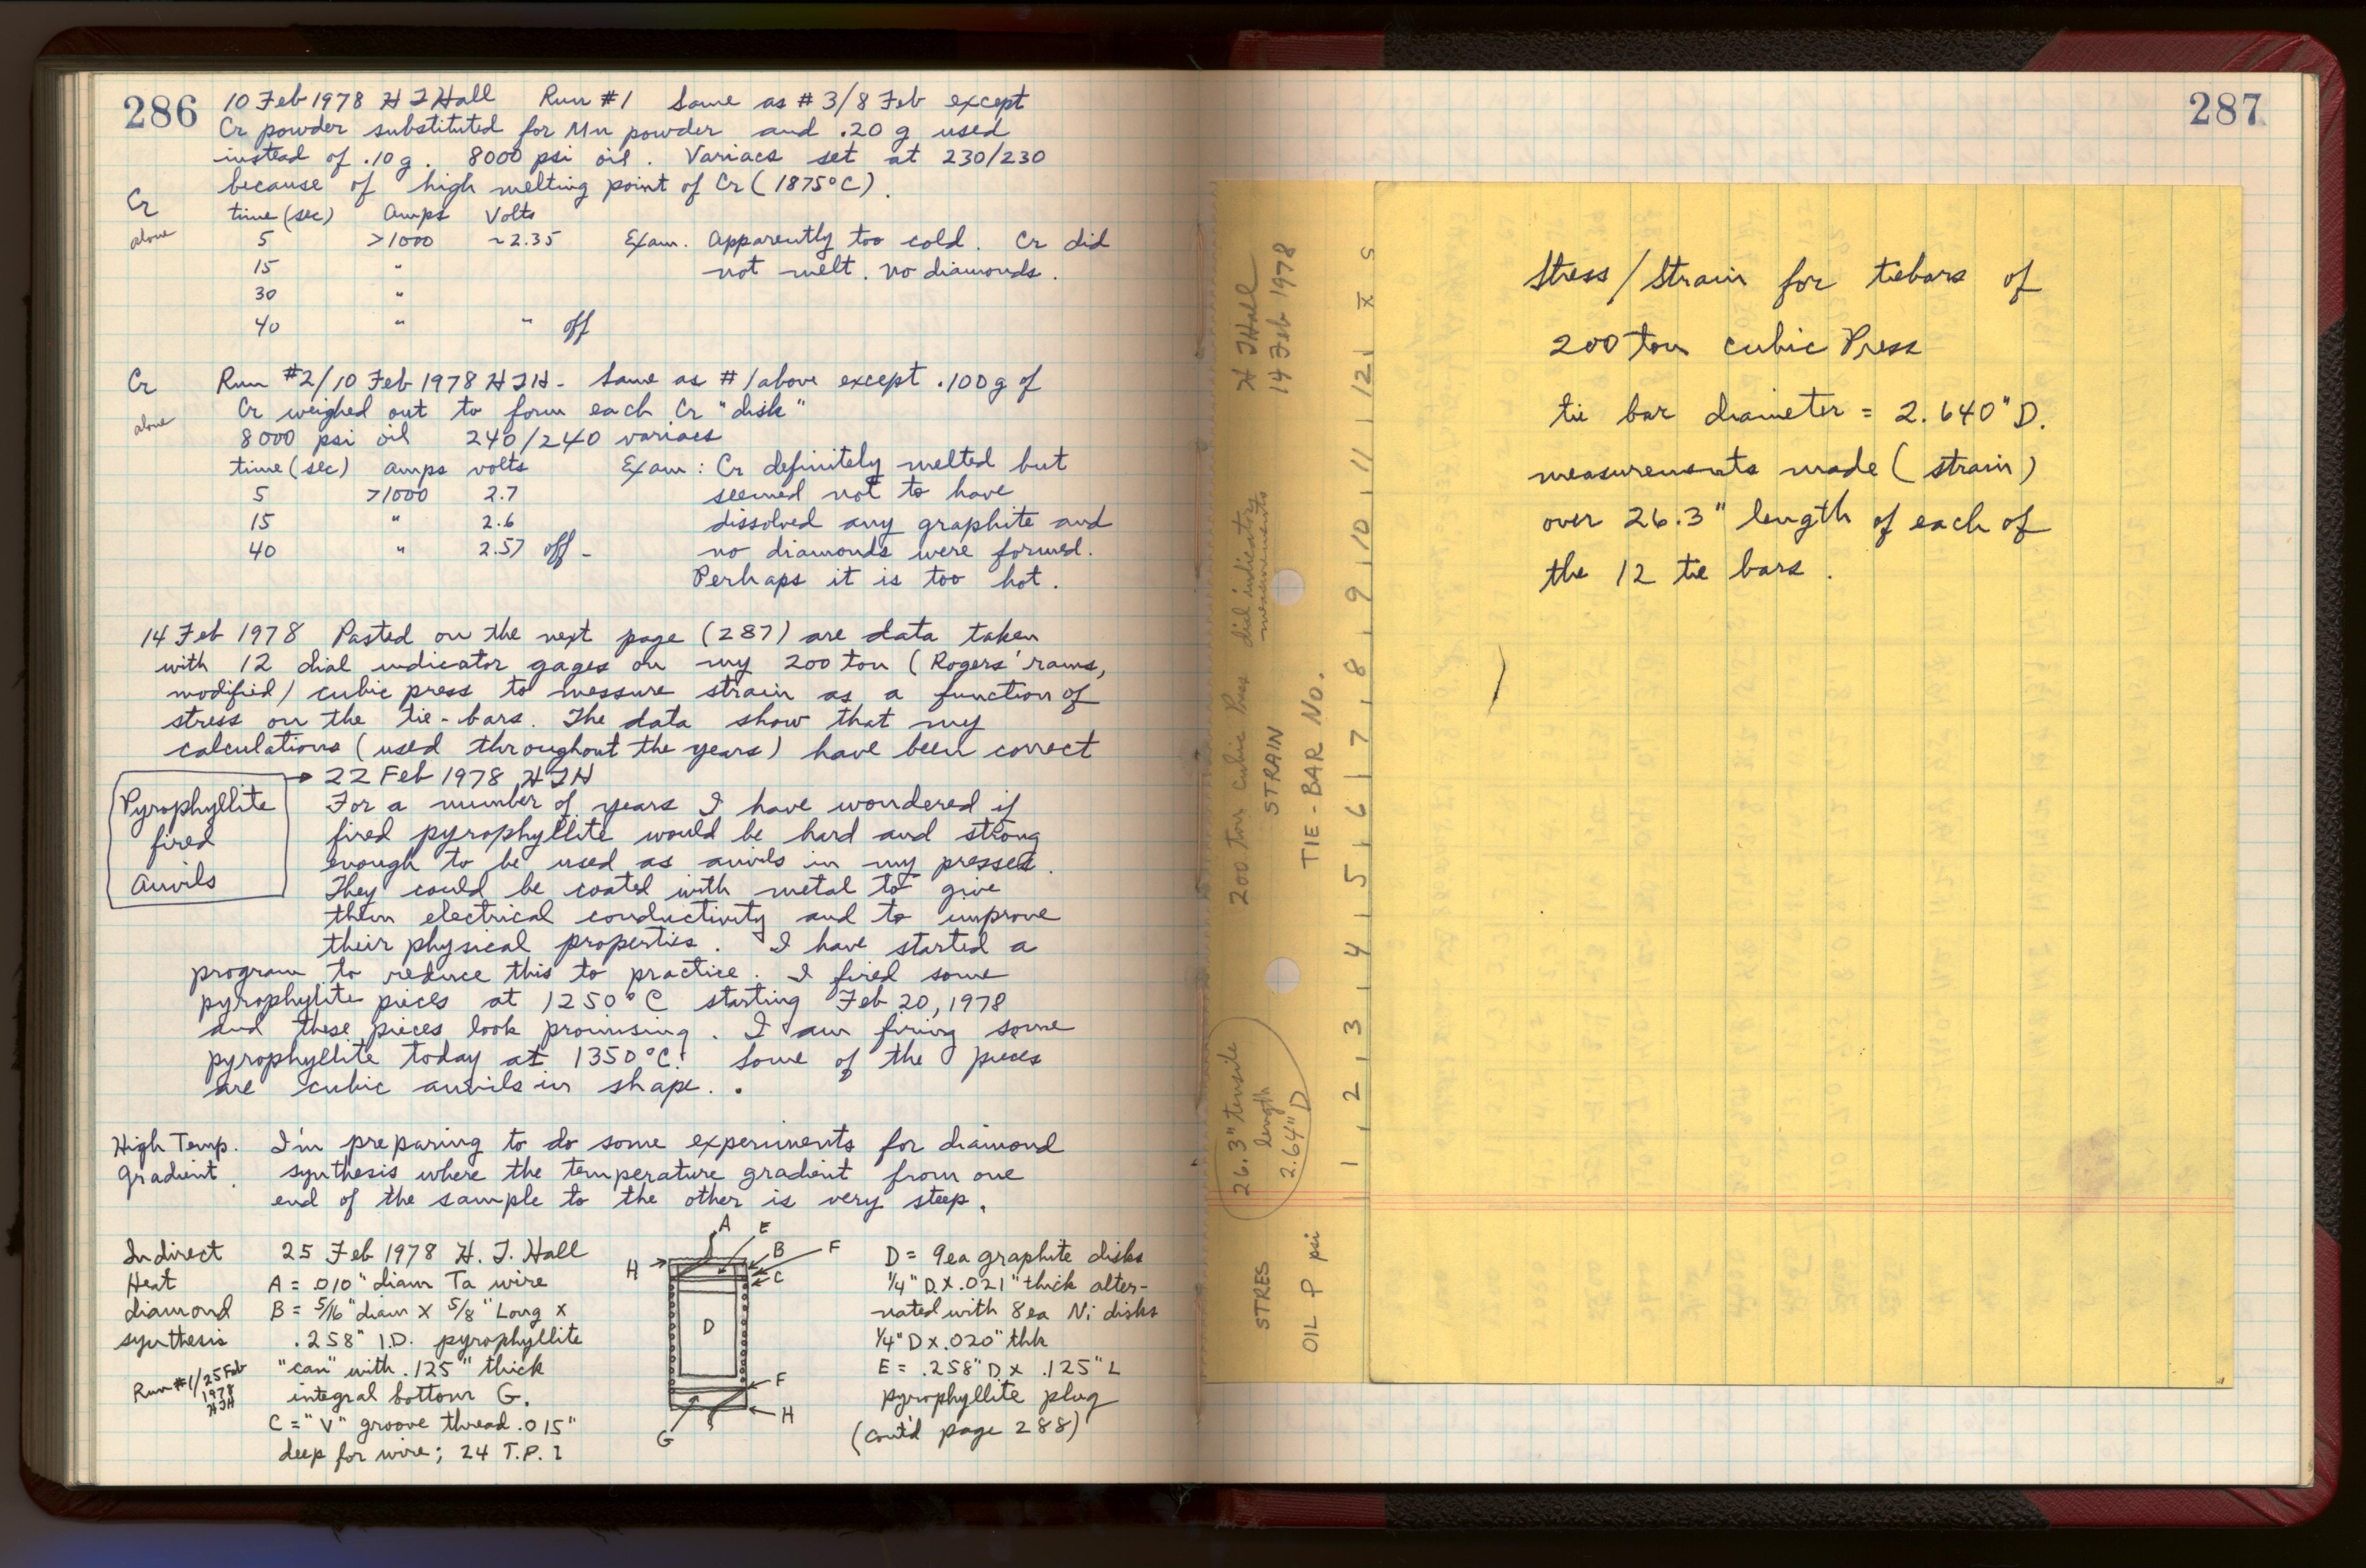 286
10 Feb 1978 H T Hall Run #1 Same as #3/8 Feb except
Cr powder substituted for Mn powder and .20 g used
instead of .10 g. 8000 psi oil. Variacs set at 230/230
because of high melting point of Cr (1875°C).
Cr
alone
time (sec) Amps Volts
5 >1000 ~2.35 Exam. Apparently too cold. Cr did
15 " not melt. No diamonds.
30 "
40 " " off
Cr
alone
Run #2/10 Feb 1978 HTH - Same as #1 above except .100 g of
Cr weighed out to form each Cr "disk"
8000 psi oil 240/240 variacs
time (sec) amps volts Exam: Cr definitely melted but
5 >1000 2.7 seemed not to have
15 " 2.6 dissolved any graphite and
40 " 2.57 off - no diamonds were formed.
Perhaps it is too hot.
14 Feb 1978 Pasted on the next page (287) are data taken
with 12 dial indicator gages on my 200 ton (Rogers' rams,
modified) cubic press to messure strain as a function of
stress on the tie-bars. The data show that my
calculations (used throughout the years) have been correct
Pyrophyllite
fired
Anvils
22 Feb 1978 HTH
For a number of years I have wondered if
fired pyrophyllite would be hard and strong
enough to be used as anvils in my presses.
They could be coated with metal to give
them electrical conductivity and to improve
their physical properties. I have started a
program to reduce this to practice. I fired some
pyrophylite pieces at 1250°C starting Feb 20, 1978
and these pieces look promising. I am firing some
pyrophyllite today at 1350°C. Some of the pieces
are cubic anvils in shape.
High Temp.
Gradient.
I'm preparing to do some experiments for diamond
synthesis where the temperature gradient from one
end of the sample to the other is very steep.
Indirect
Heat
diamond
synthesis
Run #1/25 Feb
1978
HTH
25 Feb 1978 H. T. Hall
A = .010" diam Ta wire
B = 5/16" diam X 5/8" Long x
.258" I.D. pyrophyllite
"can" with .125" thick
integral bottom G.
C = "V" groove thread .015"
deep for wire; 24 T.P.I
A
E
B
F
C
H
D
F
H
G
D = 9ea graphite disks
1/4" D X .021" thick alter-
nated with 8ea Ni disks
1/4" D x .020" thk
E = .258" D x .125" L
pyrophyllite plug
(cont'd page 288)
287
H T Hall
14 Feb 1978
200 ton Cubic Press dial indicator
measurements
STRAIN
TIE-BAR No.
1 2 3 4 5 6 7 8 9 10 11 12 X̅ S
26.3" tensile
length
2.64" D
STRES
OIL P psi
Stress/Strain for tiebars of
200 ton cubic Press
tie bar diameter = 2.640" D.
measurements made (strain)
over 26.3" length of each of
the 12 tie bars.